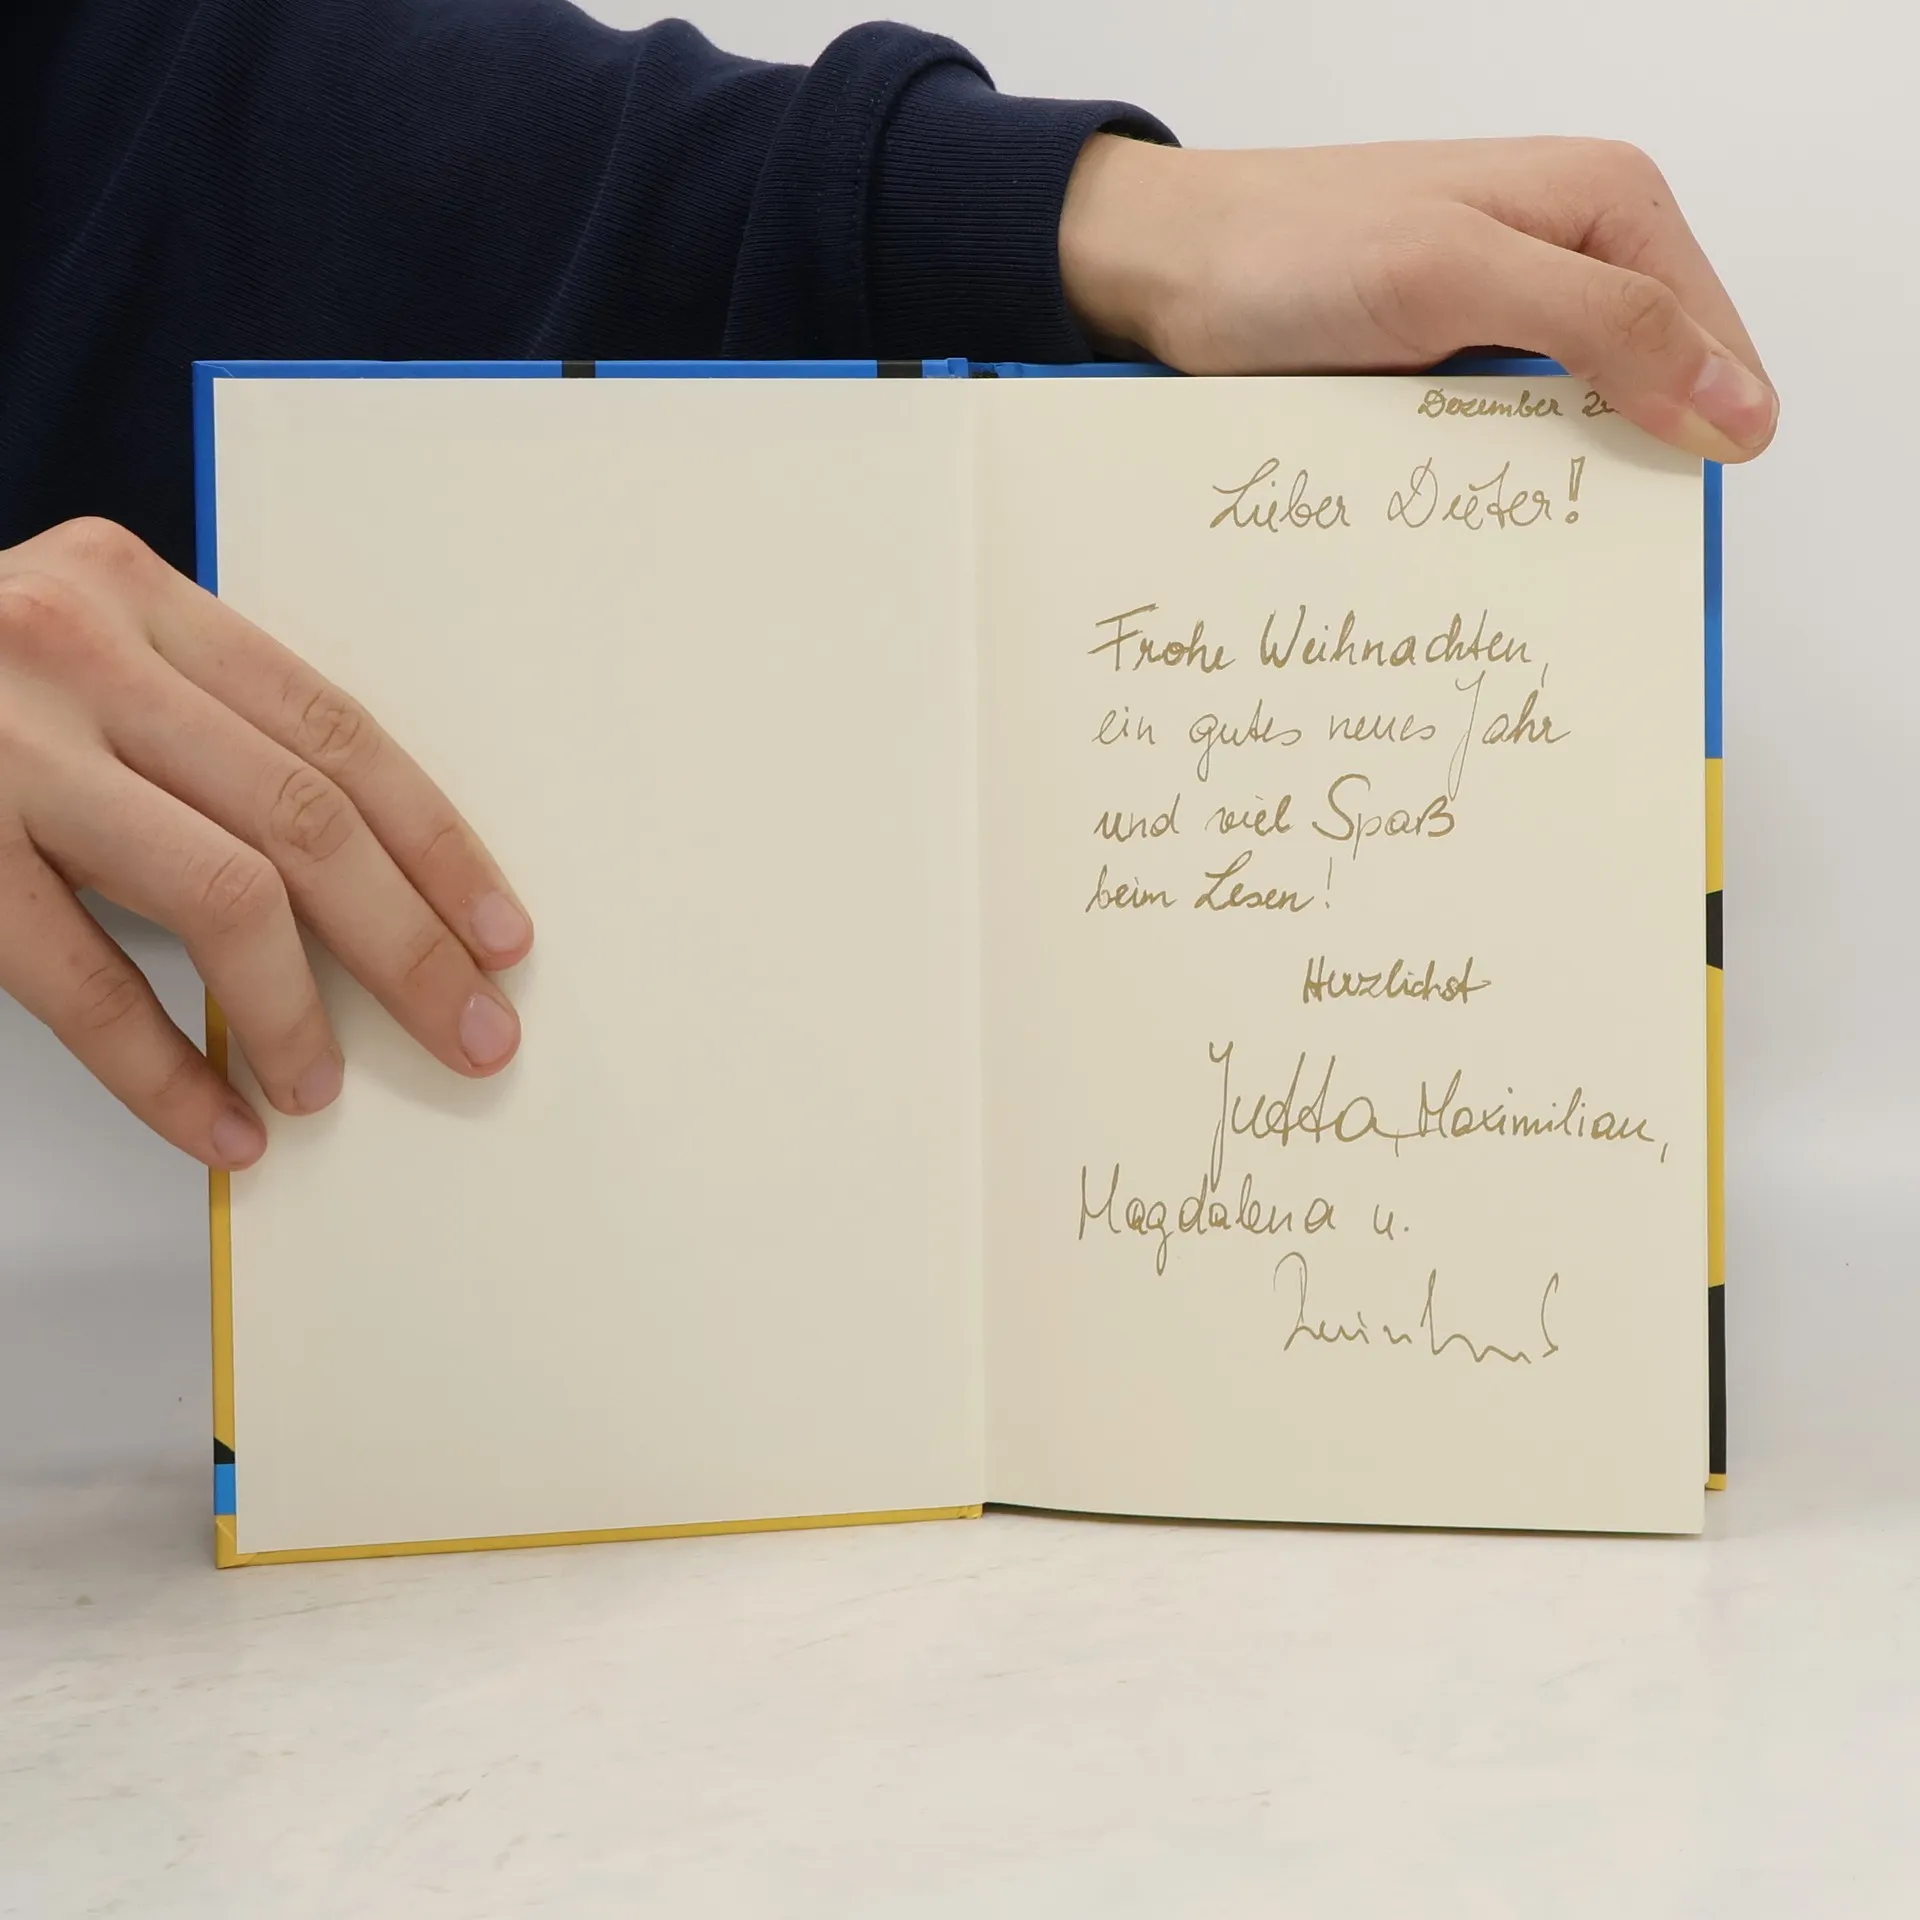 Dezember 2
Lieber Dieter!
Frohe Weihnachten,
ein gutes neues Jahr
und viel Spaß
beim Lesen!
Herzlichst
Jutta, Maximilian,
Magdalena u.